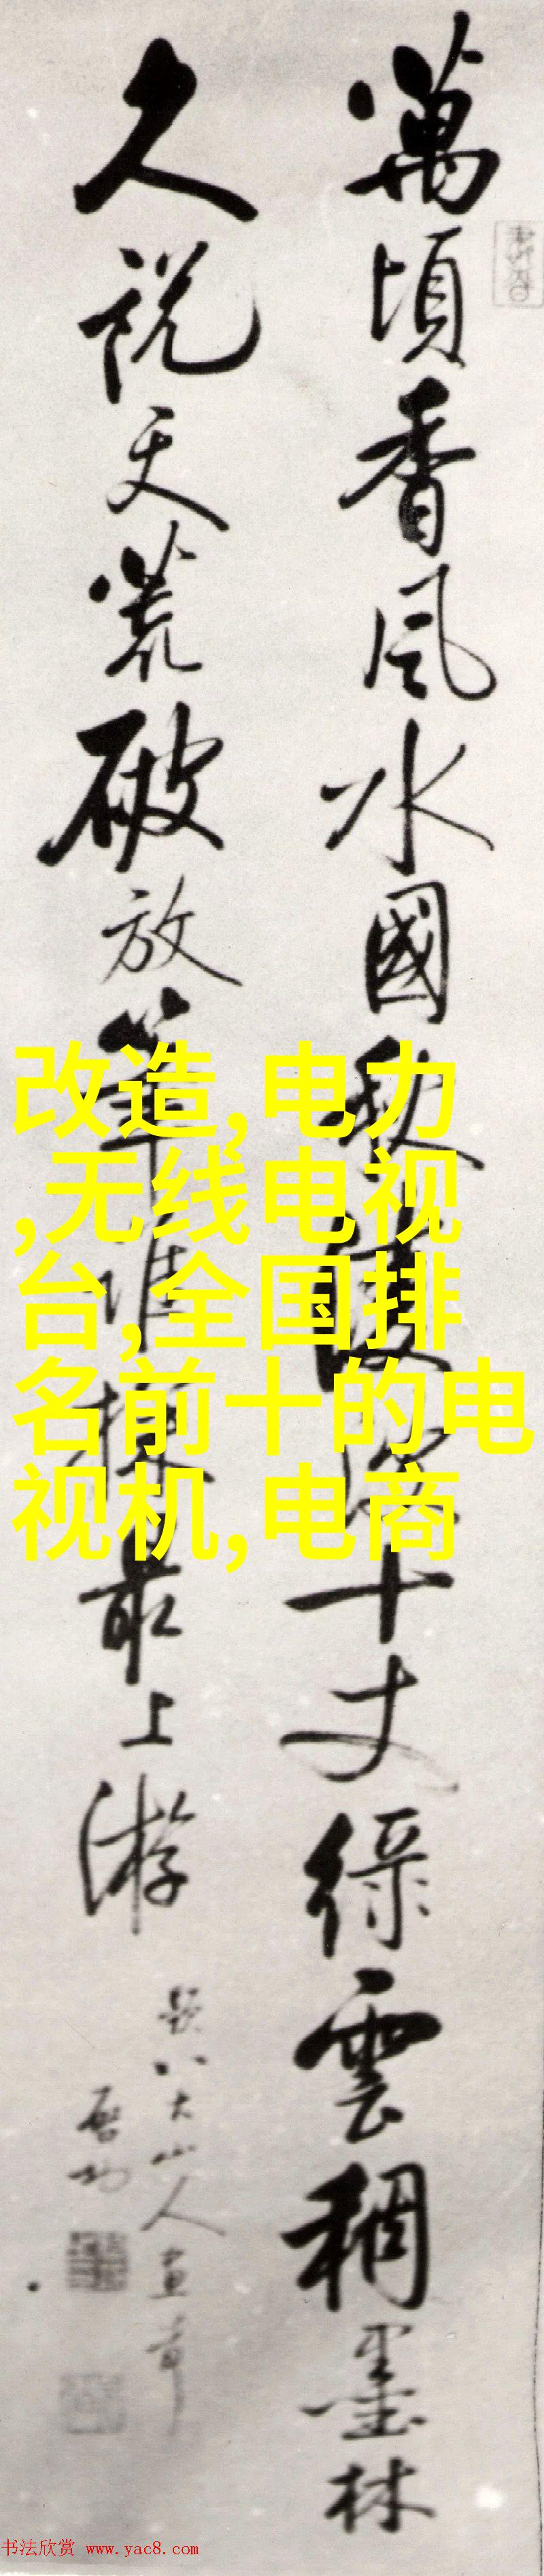 萬頃香風水國秋深十丈綠雲稠墨林
久說天荒破放筆誰探最上游
題八大山人畫
啓功
改造,电力
,无线电视
台,全国排
名前十的电
视机,电商
书法欣赏 www.yac8.com